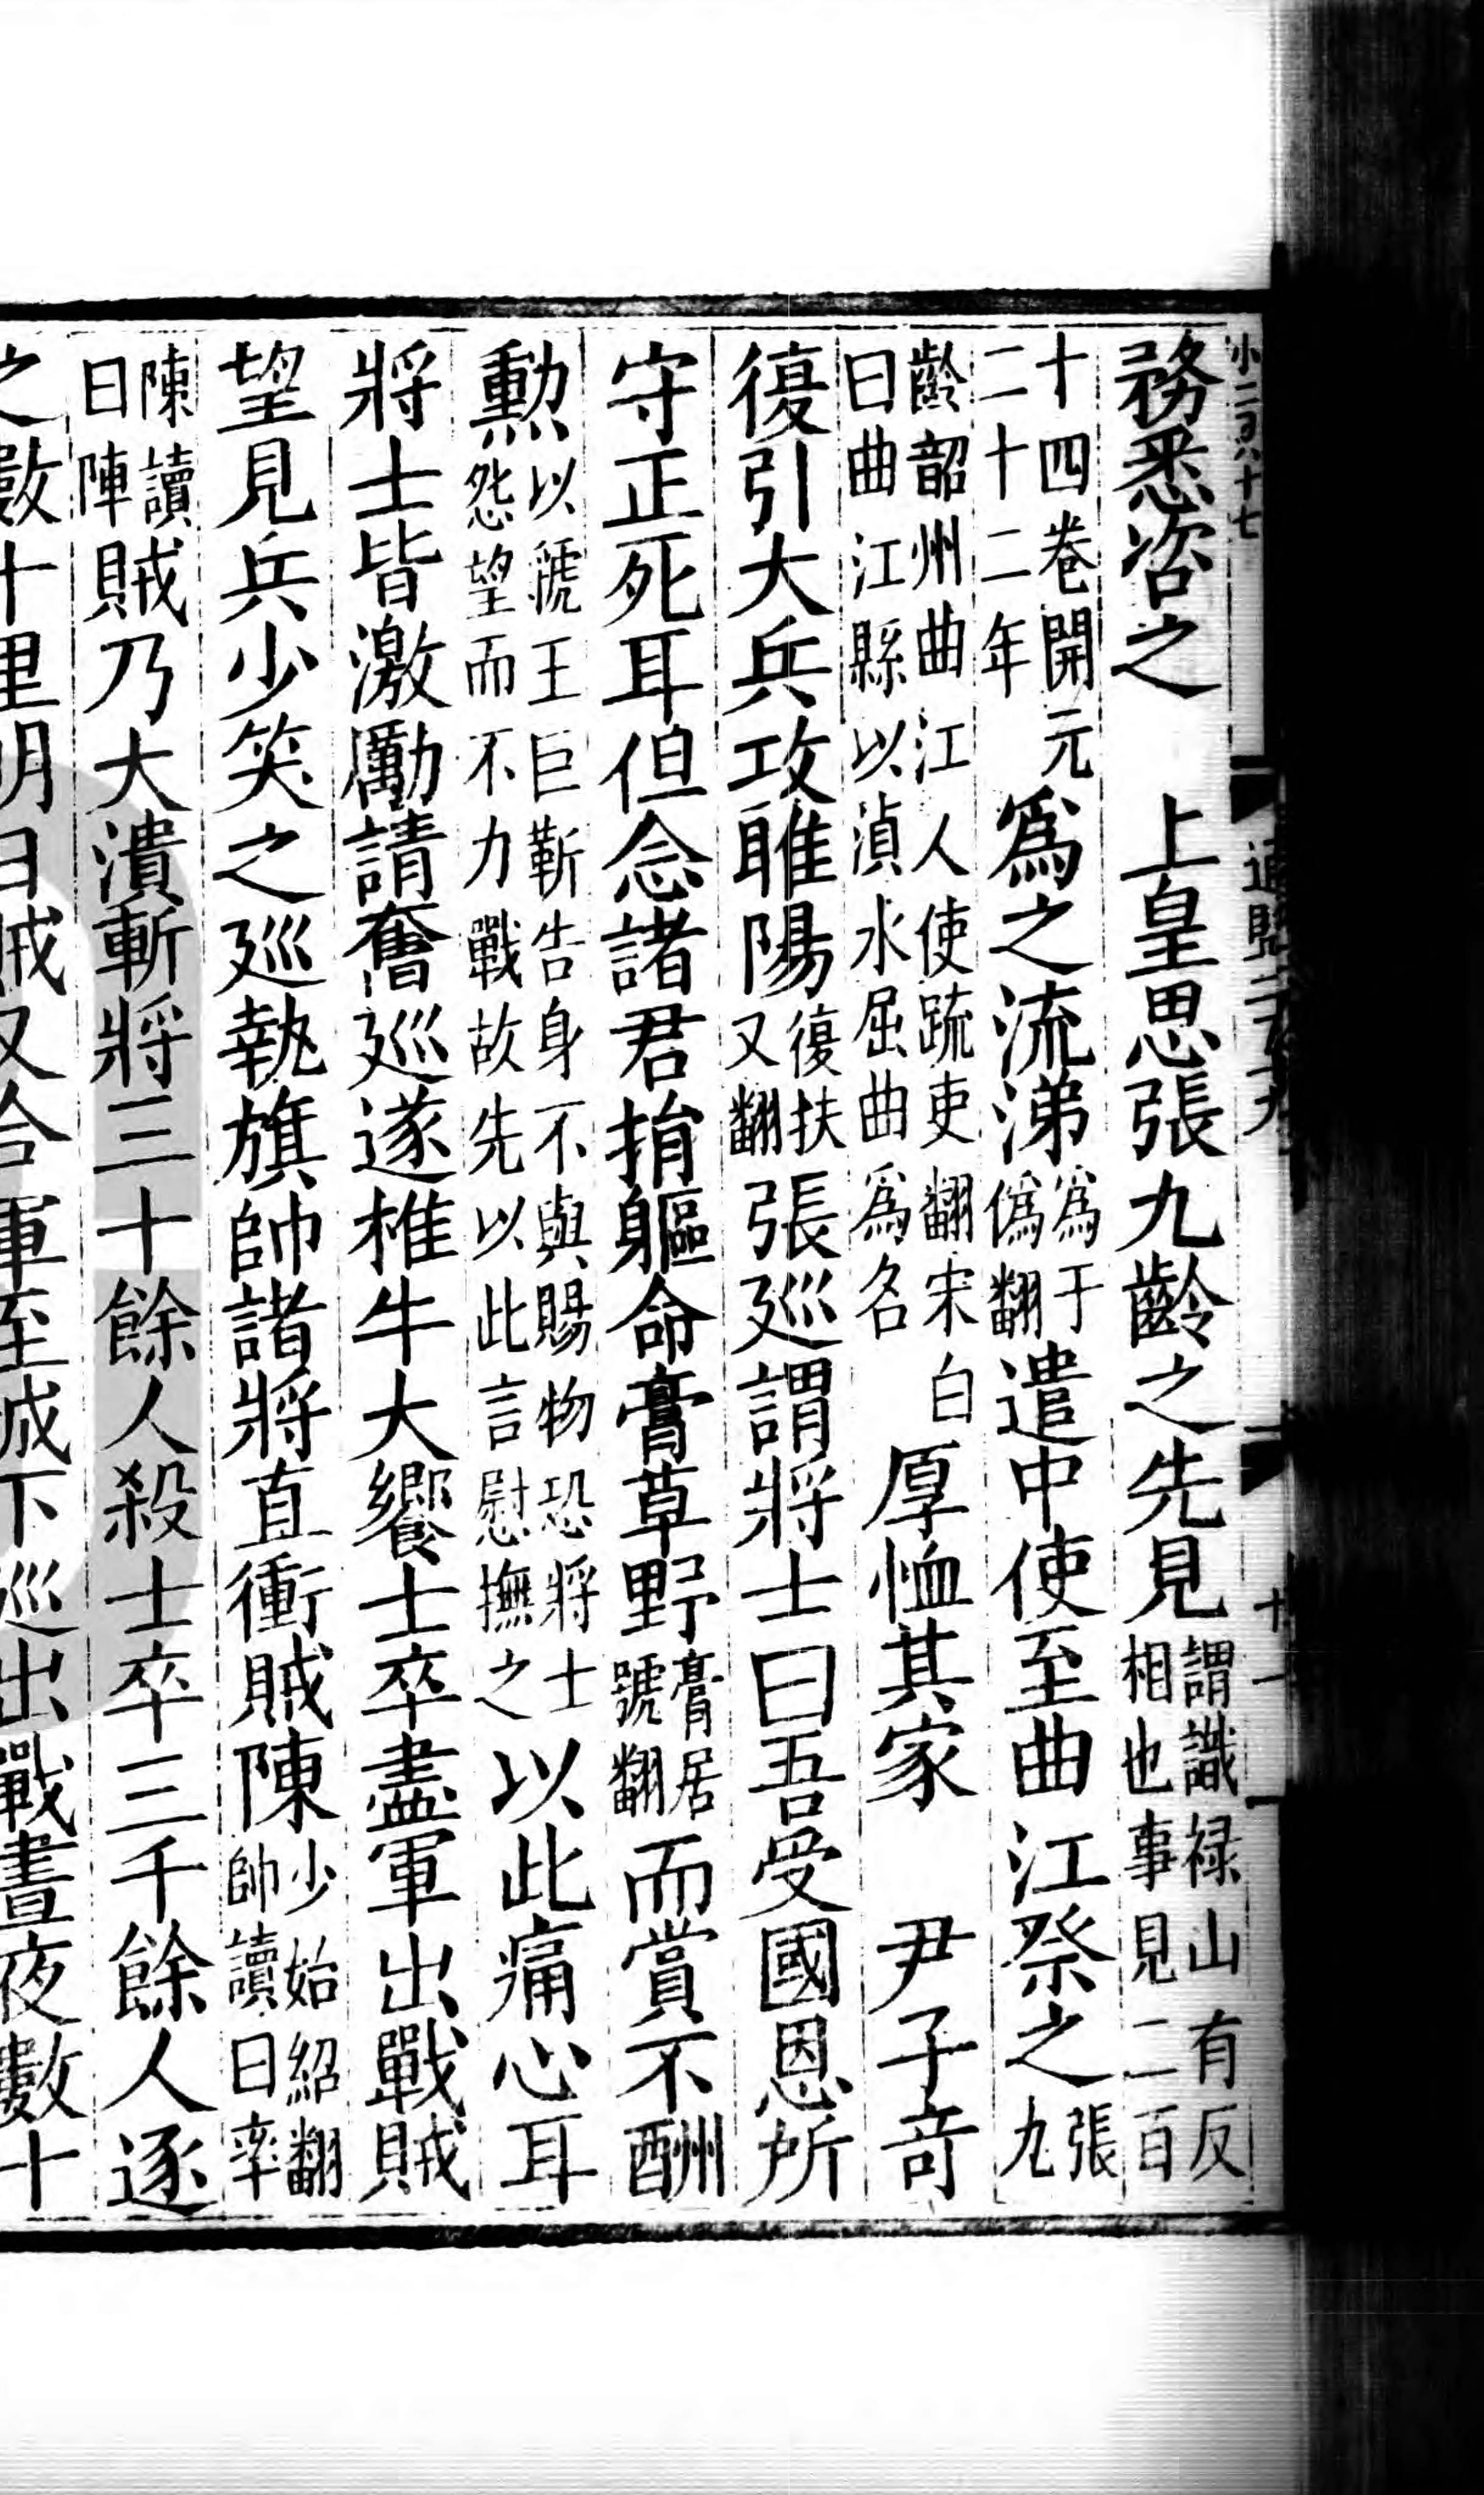 小二百八十七
務悉咨之　上皇思張九齡之先見謂識祿山有反相也事見二百
十四卷開元二十二年爲之流涕爲于僞翻遣中使至曲江祭之張九
齡韶州曲江人使疏吏翻宋白曰曲江縣以湞水屈曲爲名厚恤其家　尹子奇
復引大兵攻睢陽復扶又翻張巡謂將士曰吾受國恩所
守正死耳但念諸君捐軀命膏草野膏居號翻而賞不酬
勲以虢王巨靳告身不與賜物恐將士怨望而不力戰故先以此言慰撫之以此痛心耳
將士皆激勵請奮巡遂椎牛大饗士卒盡軍出戰賊
望見兵少笑之巡執旗帥諸將直衝賊陳少始紹翻帥讀曰率
陳讀曰陣賊乃大潰斬將三十餘人殺士卒三千餘人逐
之數十里明日賊又合軍至城下巡出戰晝夜數十